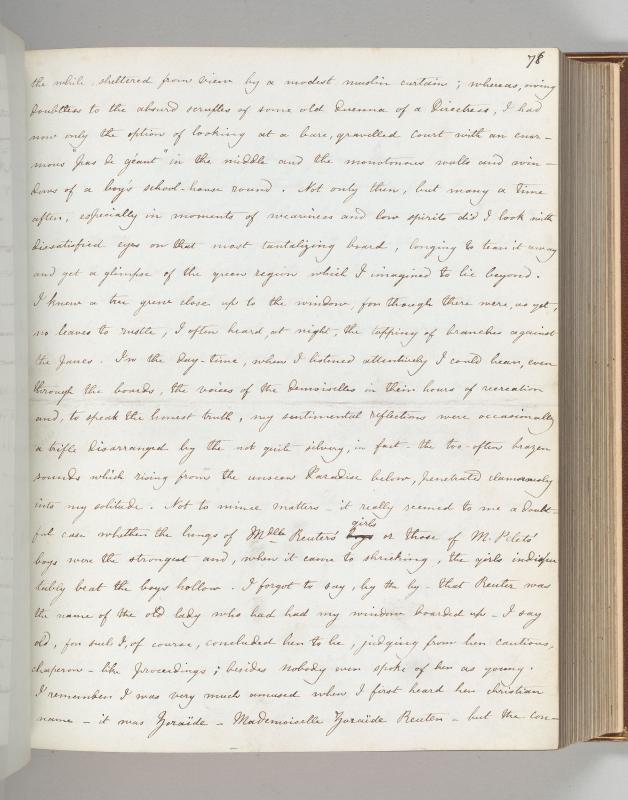 78
the while, sheltered from view by a modest muslin curtain ; whereas, owing
doubtless to the absurd scruples of some old duenna of a Directress, I had
now only the option of looking at a bare, gravelled court with an enor-
mous "pas de géant" in the middle and the monotonous walls and win-
dows of a boy's school-house round . Not only then, but many a time
after, especially in moments of weariness and low spirits did I look with
dissatisfied eyes on that most tantalizing board , longing to tear it away
and get a glimpse of the green region which I imagined to lie beyond .
I knew a tree grew close up to the window, for though there were, as yet,
no leaves to rustle, I often heard, at night, the tapping of branches against
the panes . In the day-time, when I listened attentively I could hear, even
through the boards, the voices of the demoiselles in their hours of recreation
and, to speak the honest truth, my sentimental reflections were occasionally
a trifle disarranged by the not quite silvery, in fact - the too-often brazen
sounds which rising from the unseen Paradise below, penetrated clamorously
into my solitude . Not to mince matters - it really seemed to me a doubt-
girls
ful case whether the lungs of Mdlle Reuters' boys or those of M. Pelets'
boys were the strongest and, when it came to shrieking, the girls indispu
tably beat the boys hollow . I forgot to say, by the by - that Reuter was
the name of the old lady who had had my window boarded up - I say
old, for such I, of course, concluded her to be, judging from her cautious,
chaperon-like proceedings ; besides nobody ever spoke of her as young .
I remember I was very much amused when I first heard her christian
name - it was Zoraïde - Mademoiselle Zoraïde Reuter - but the con-